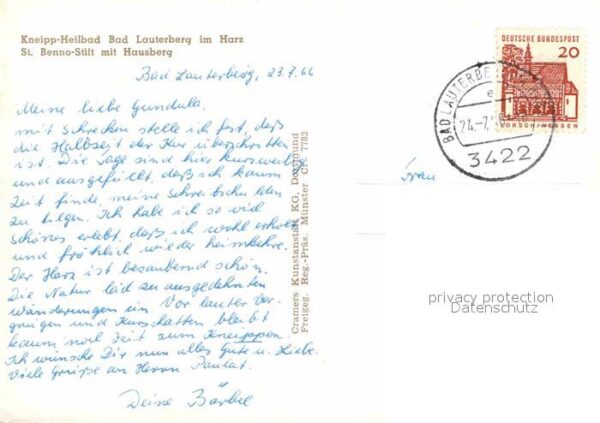 Kneipp-Heilbad Bad Lauterberg im Harz
St. Benno-Stift mit Hausberg
Bad Lauterberg, 23.7.66
Meine liebe Gundula,
mit Schrecken stelle ich fest, daß
die Halbzeit der Kur überschritten
ist. Die Tage sind hier kurzweilig
und ausgefüllt, daß ich kaum
Zeit finde, meine Schreibschulden
zu tilgen. Ich habe ich so viel
Schönes erlebt, daß ich wohl erholt
und fröhlich wieder heimkehre.
Der Harz ist bezaubernd schön.
Die Natur läd zu ausgedehnten
Wanderungen ein Vor lauter Ver-
gnügen und Kurschatten bleibt
kaum noch Zeit zum Kneippen.
Ich wünsche Dir nun alles Gute u. Liebe.
Viele Grüße an Herrn
Deine Bärbel
Cramers Kunstanstalt KG, Dortmund
Freigeg. Reg.-Präs. Münster CK 7783
DEUTSCHE BUNDESPOST
20
LORSCH/HESSEN
BAD LAUTERBE
e
24.-7.
3422
Frau
privacy protection
Datenschutz